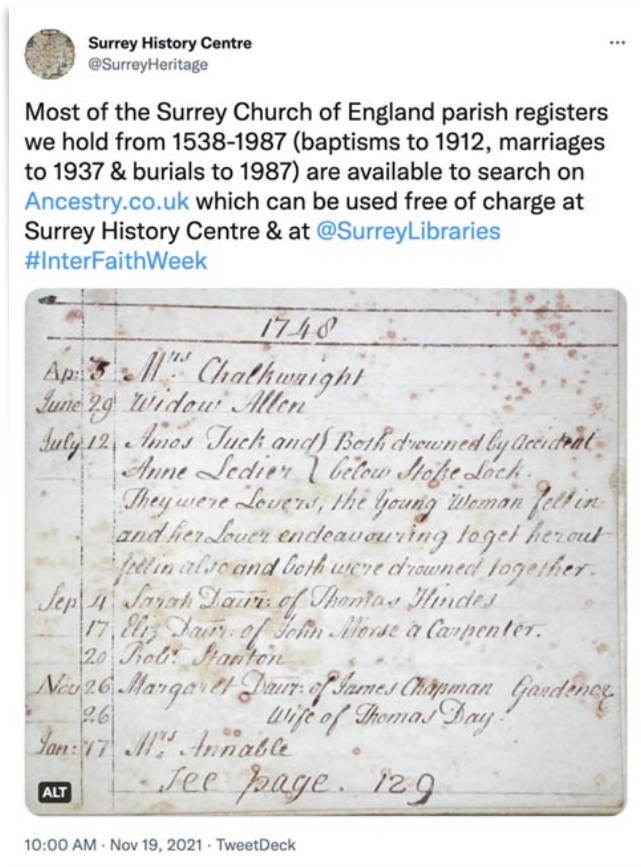 Surrey History Centre
@SurreyHeritage
Most of the Surrey Church of England parish registers
we hold from 1538-1987 (baptisms to 1912, marriages
to 1937 & burials to 1987) are available to search on
Ancestry.co.uk which can be used free of charge at
Surrey History Centre & at @SurreyLibraries
#InterFaithWeek
1748
Ap: 3 Mrs Chalkwright
June 29 Widow Allen
July 12 Amos Tuck and } Both drowned by Accident
Anne Ledier } below Stoke Lock.
They were Lovers, the Young Woman fell in
and her Lover endeavouring to get her out
fell in also and both were drowned together.
Sep 4 Sarah Daur: of Thomas Hindes
17 Eliz Daur: of John Morse a Carpenter.
20 Robt. Stanton
Nov 26 Margaret Daur: of James Chapman Gardener
26 Wife of Thomas Day.
Jan: 17 Mrs. Annable
See page. 129
ALT
10:00 AM · Nov 19, 2021 · TweetDeck